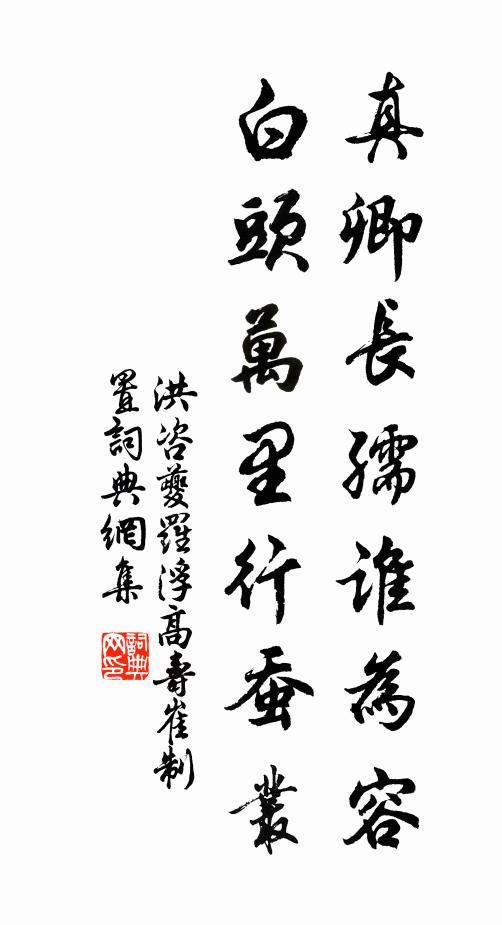 真卿長孺誰為容
白頭萬里行蚕叢
洪咨夔羅浮高壽崔制
置詞典網集
詞典
网印